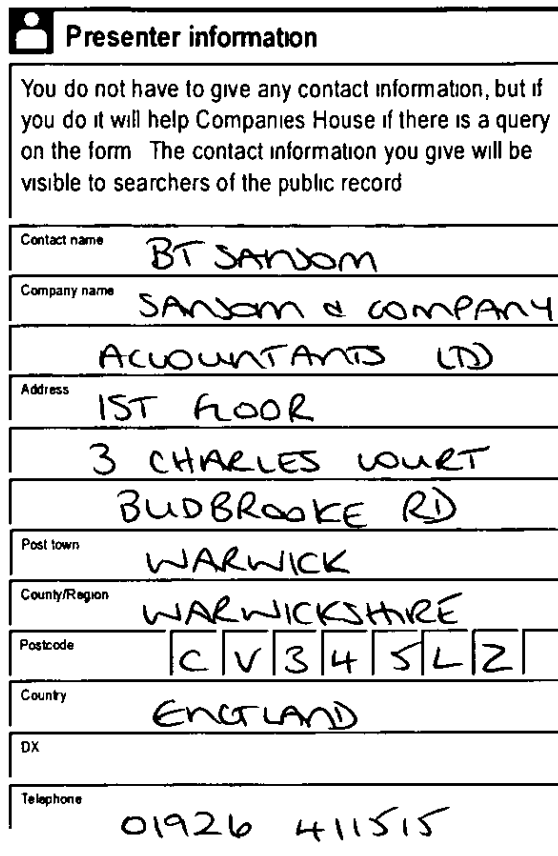 Presenter information
You do not have to give any contact information, but if
you do it will help Companies House if there is a query
on the form The contact information you give will be
visible to searchers of the public record
Contact name BT SANSOM
Company name SANSOM & COMPANY
ACCOUNTANTS LTD
Address 1ST FLOOR
3 CHARLES COURT
BUDBROOKE RD
Post town WARWICK
County/Region WARWICKSHIRE
Postcode CV34 5LZ
Country ENGLAND
DX
Telephone 01926 411515